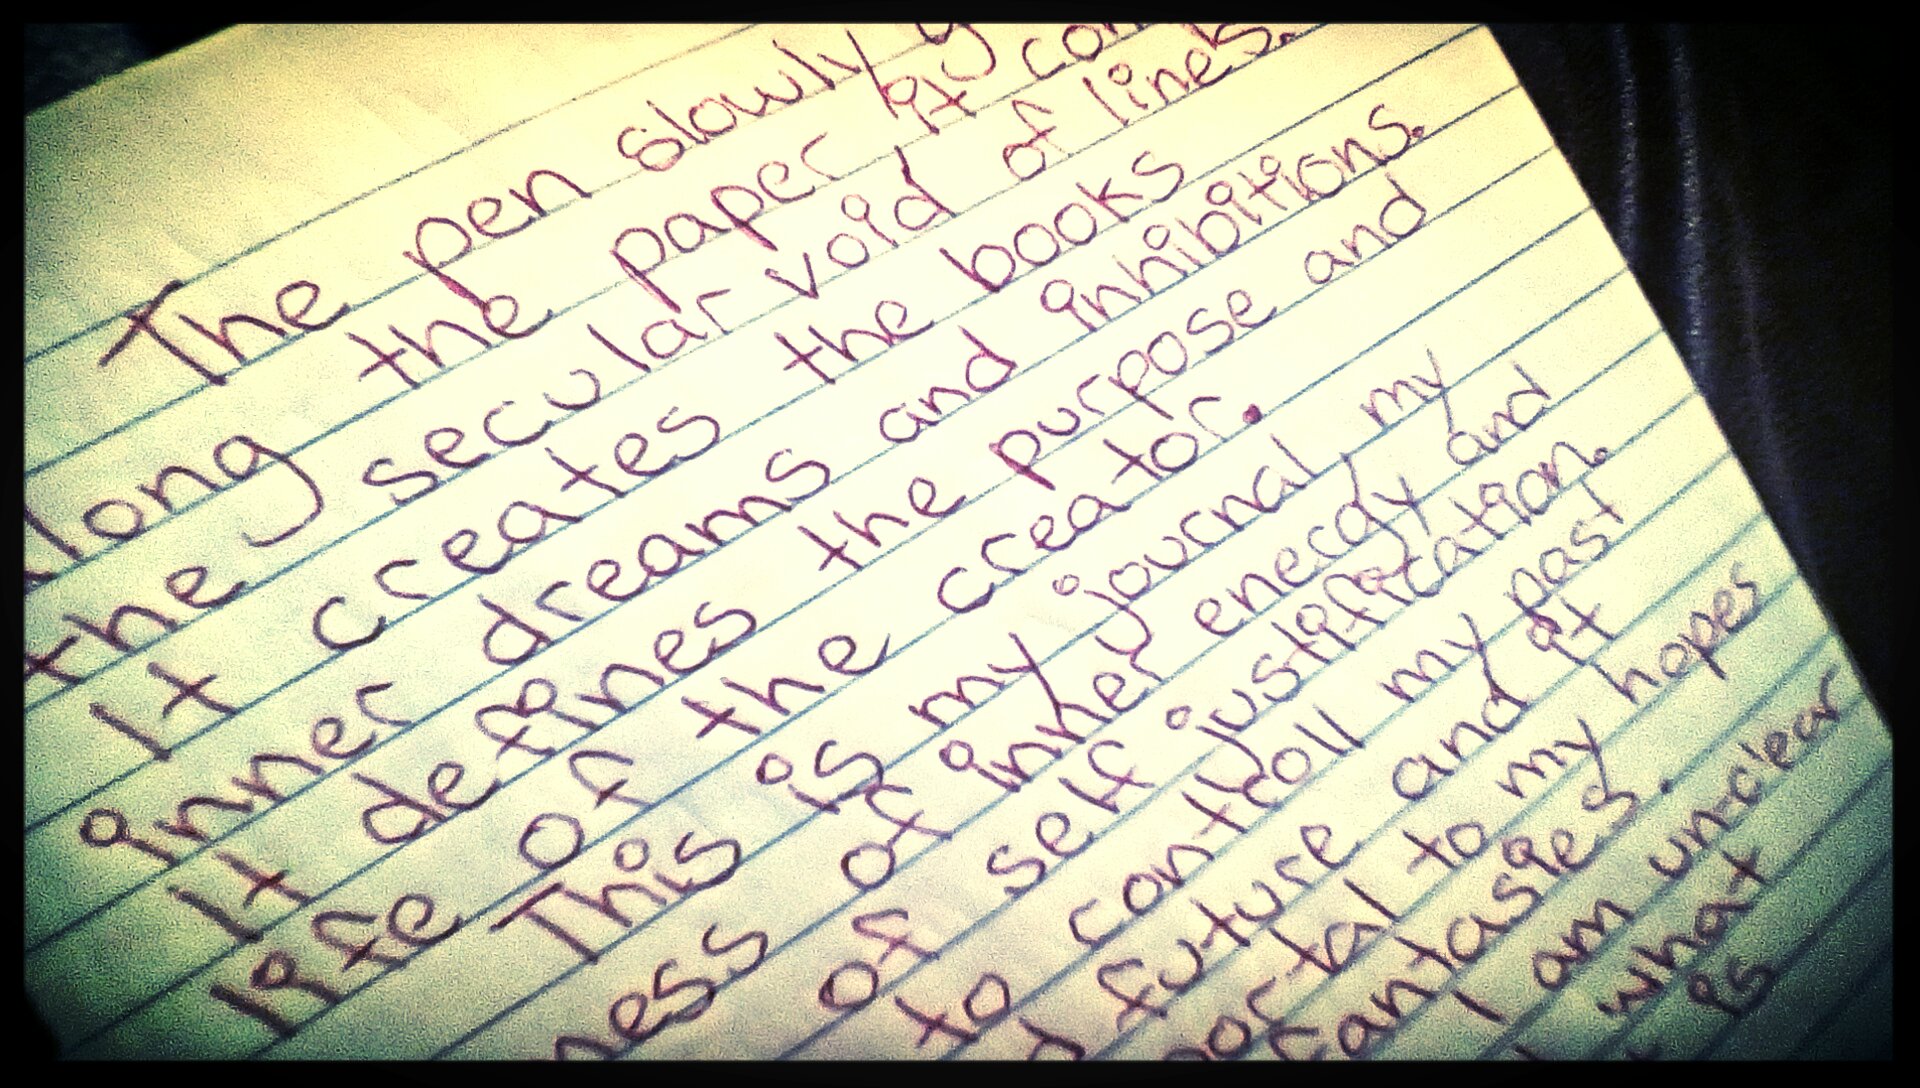 The pen slowly
long the paper it
the secular void of lines.
It creates the books
inner dreams and inhibitions.
It defines the purpose and
life of the creator.
This is my journal my
ness of inner energy and
of self justification.
to controll my past
future and it
to my hopes
fantasies.
I am un-clear
what
is